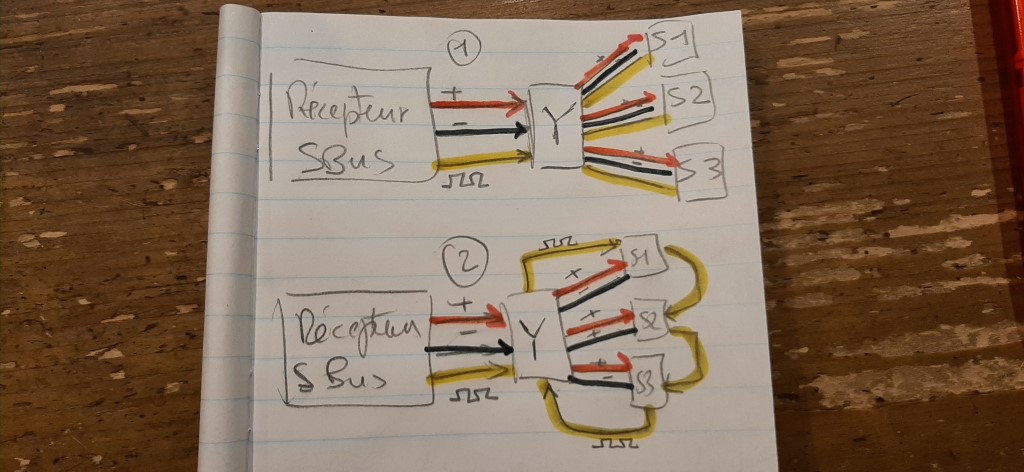 1
Récepteur
SBus
+
-
Y
+
S1
-
S2
-
-
S3
2
Récepteur
SBus
+
-
Y
+
S1
+
+
S2
+
-
S3